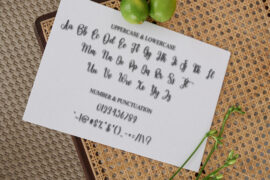 UPPERCASE & LOWERCASE
Aa Bb Cc Dd Ee Ff Gg Hh Ii Jj Kk Ll
Mm Nn Oo Pp Qq Rr Ss Tt
Uu Vv Ww Xx Yy Zz
NUMBER & PUNCTUATION
0123456789